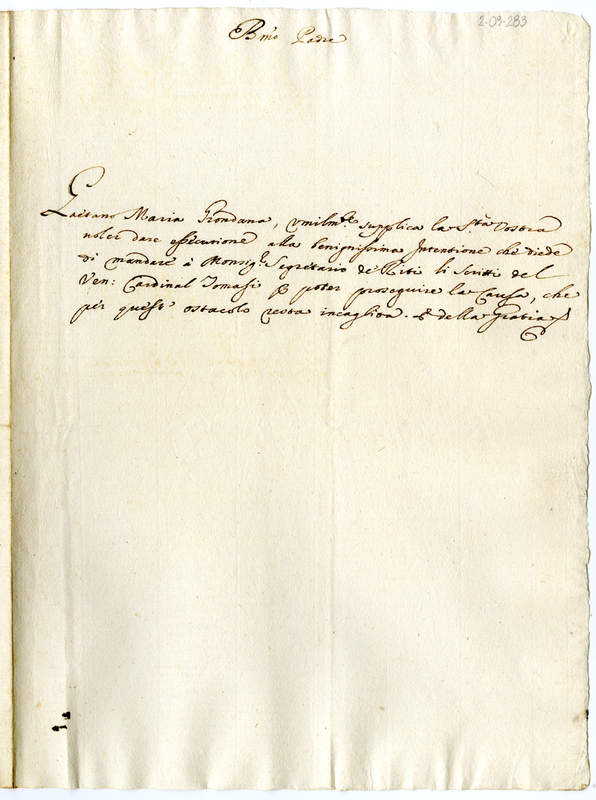 2-09-283
Bmo Padre
Gaetano Maria Grondana, vmilmte supplica la Stà Vostra
voler dare essecusione alla benignissima Intentione che diede
di mandare à Monsigr Segretario de' Riti li Scritti del
Ven: Cardinal Tomasi p poter proseguire la Causa, che
per quest' ostacolo resta incagliata. E della Gratia